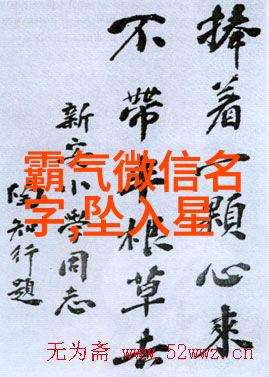 捧着一顆心來
不帶半根草去
新安小学同志
陶知行題
霸气微信名
字 坠入星
无为斋 www.52wwz.cn